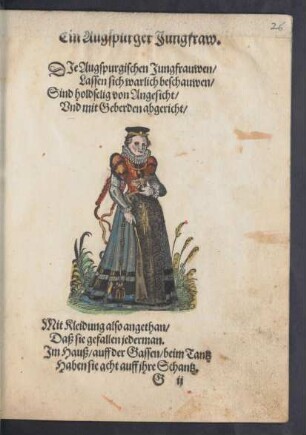 26
Ein Augspurger Jungfraw.
DJe Augspurgischen Jungfrauwen/
Lassen sich warlich beschauwen/
Sind holdselig von Angesicht/
Vnd mit Geberden abgericht/
Mit Kleidung also angethan/
Daß sie gefallen jederman.
Im Hauß/ auff der Gassen/ beim Tantz
Haben sie acht auff ihre Schantz.
G ij